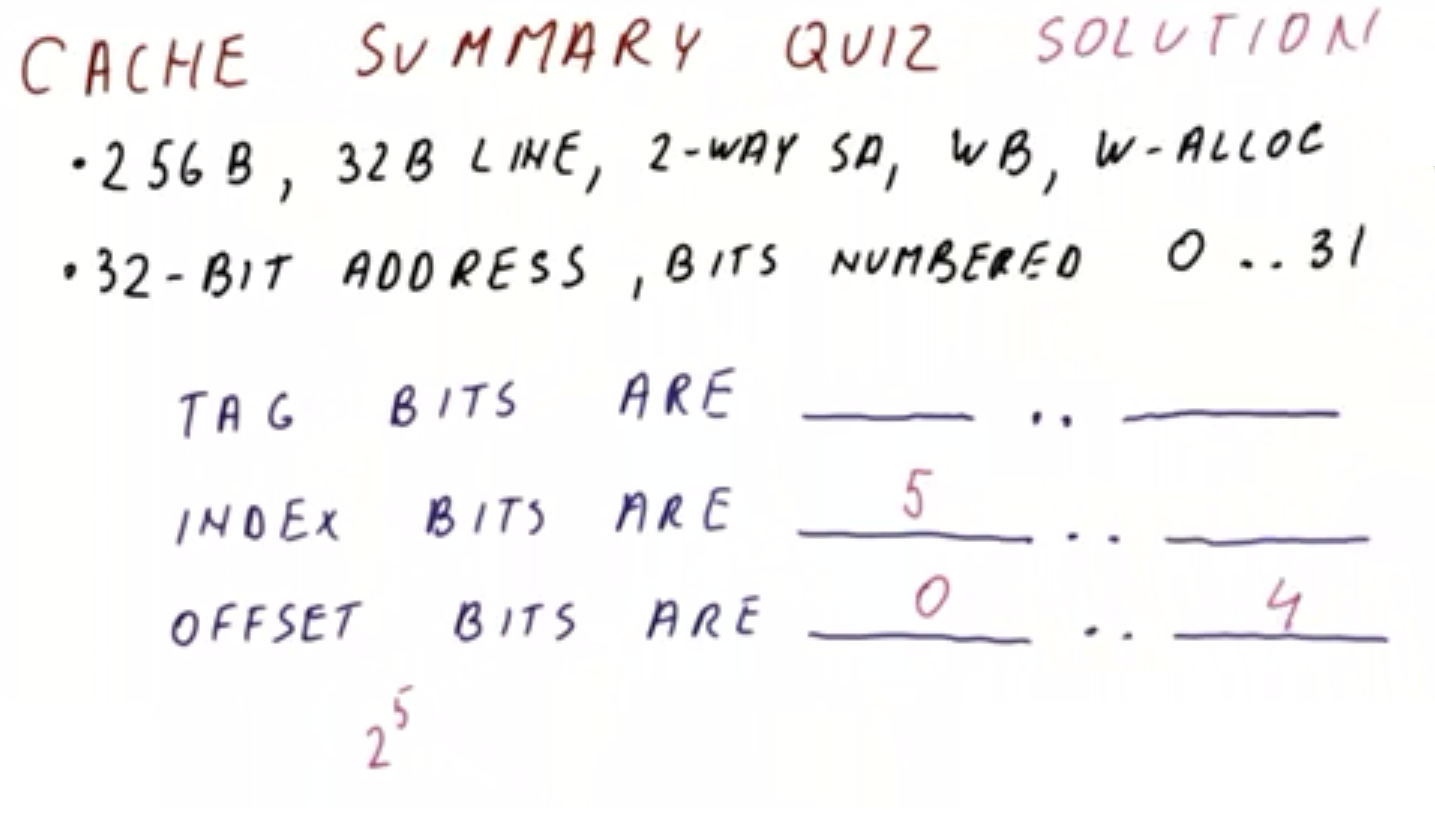 CACHE SUMMARY QUIZ SOLUTION
•256B, 32B LINE, 2-WAY SA, WB, W-ALLOC
•32-BIT ADDRESS, BITS NUMBERED 0..31
TAG BITS ARE ____ .. ____
INDEX BITS ARE 5 .. ____
OFFSET BITS ARE 0 .. 4
2⁵